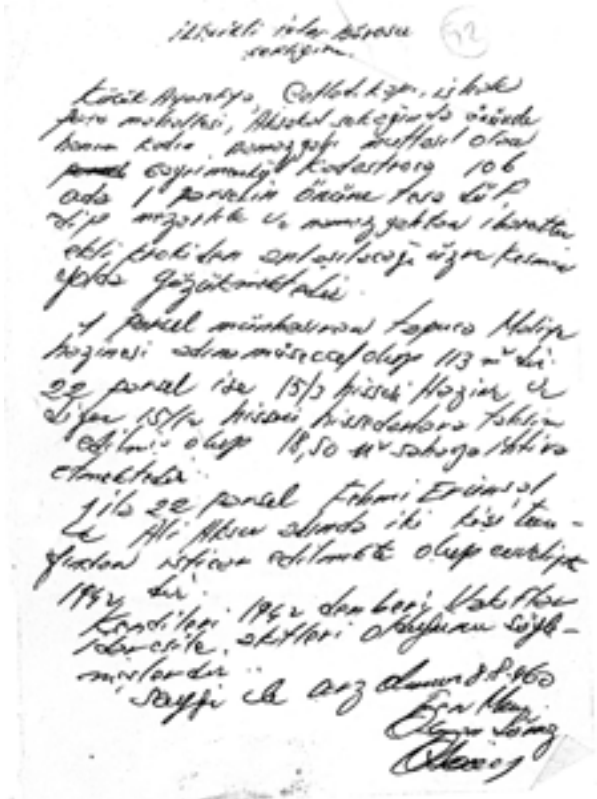 ihtilatlı işler bürosu
şefliğine.
52
Küçük Ayasofya, Çatladıkapı, ishak
paşa mahallesi, Aksakal sokağında önünde
hanım kadın namazgahı muttasıl olan
gayrimenkul Kadastroca 106
ada 1 parselin önüne tesadüf
edip mezarlık ve namazgahtan ibarettir
ekli krokiden anlaşılacağı üzere kısmen
yolda gözükmektedir.
1 parsel münhasıran tapuca Maliye
hazinesi adına müseccel olup 113 m² dir.
22 parsel ise 15/3 hissesi Hazine ve
diğer 15/12 hissesi hissedarlara taksim
edilmiş olup 18,50 m² sahaya ihtiva
etmektedir.
1 ile 22 parsel Fehmi
ve Ali Aksu adında iki kişi tara-
fından isticar edilmekte olup evveliyatı
1942 dir.
Kendileri 1942 den beri Vakıflar
İdaresile akitleri olduğunu söyle-
mişlerdir.
Saygı ile arz olunur 8.8.960
Fen Me.